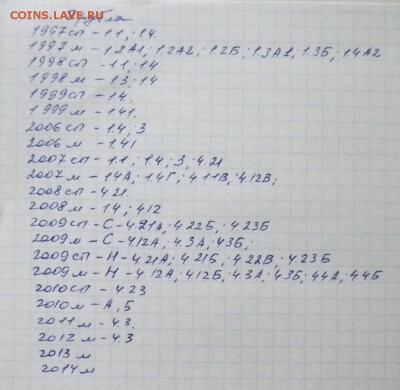 COINS.LAVE.RU
рубля
1997сп - 1.1; 1.4.
1997м - 1.2А1; 1.2А2; 1.2Б; 1.3А2; 1.3Б; 1.4А2
1998сп - 1.1; 1.4
1998м - 1.3; 1.4
1999сп - 1.4.
1999м - 1.41.
2006сп - 1.4; 3
2006м - 1.41
2007сп - 1.1; 1.4; 3; 4.21
2007м - 1.4А; 1.4Г; 4.11В; 4.12В;
2008сп - 4.21.
2008м - 1.4; 4.12
2009сп - С - 4.21А; 4.22Б; 4.23Б
2009м - С - 4.12А; 4.3А; 4.3Б;
2009сп - Н - 4.21А; 4.21Б; 4.22В; 4.23Б
2009м - Н - 4.12А; 4.12Б; 4.3А; 4.3Б; 4.4А; 4.4Б
2010сп - 4.23
2010м - А, Б
2011м - 4.3.
2012м - 4.3
2013м
2014м